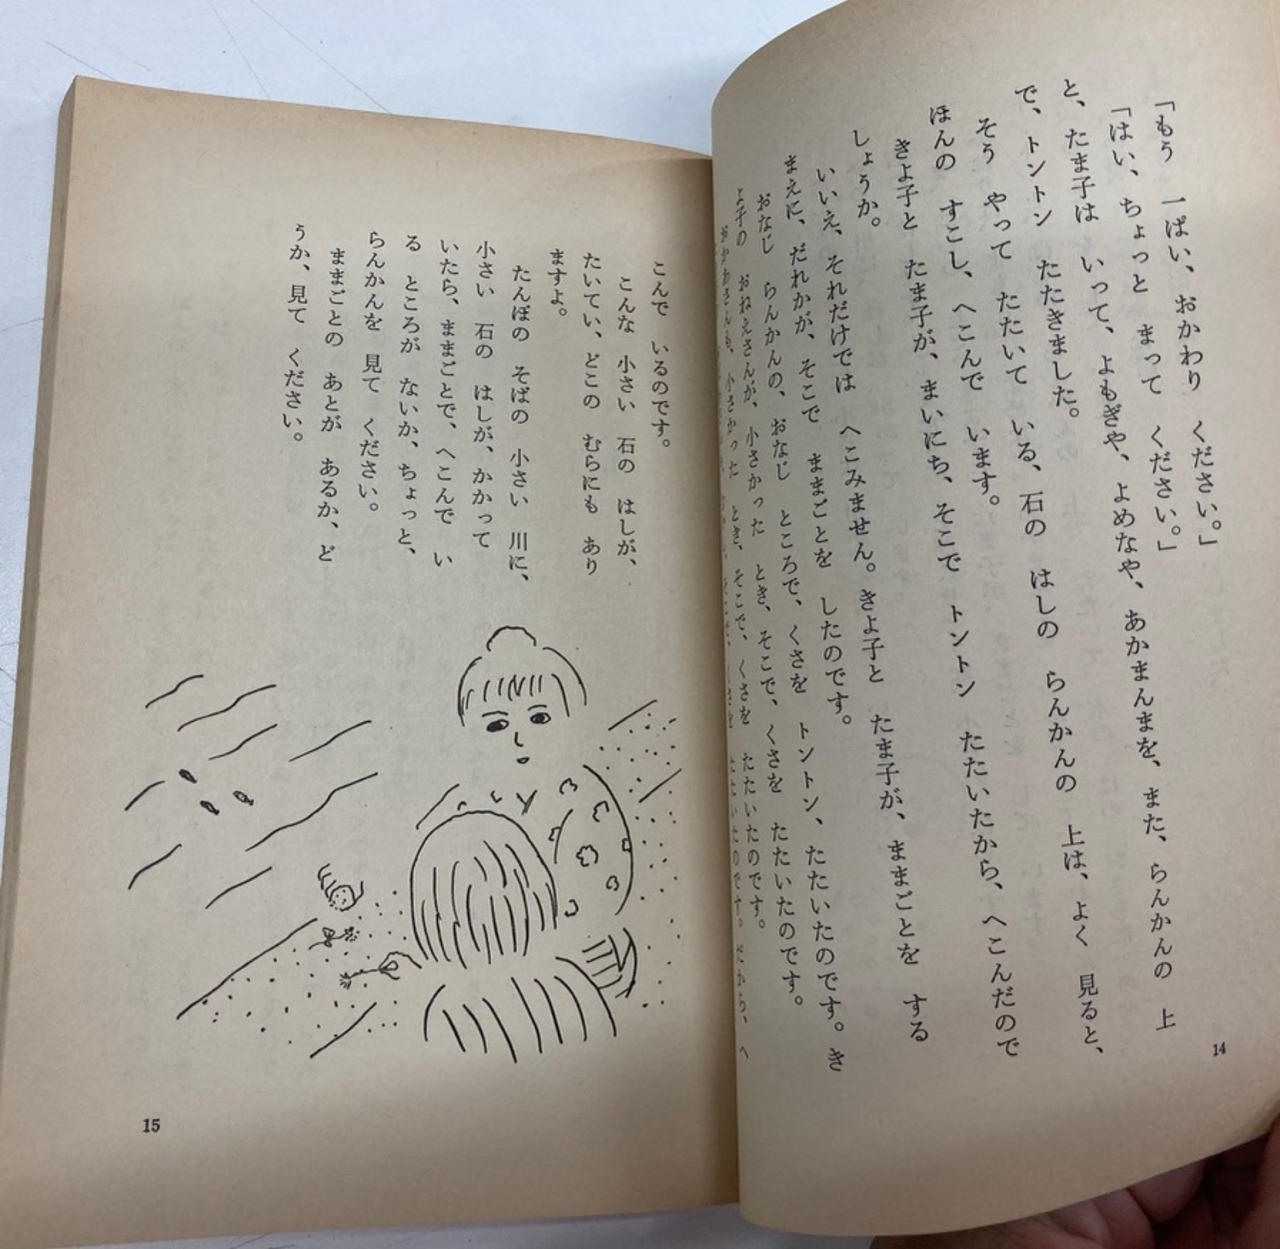 「もう 一ぱい、おかわり ください。」
「はい、ちょっと まって ください。」
と、たま子は いって、よもぎや、よめなや、あかまんまを、また、らんかんの 上
で、トントン たたきました。
そう やって たたいて いる、石の はしの らんかんの 上は、よく 見ると、
ほんの すこし、へこんで います。
きよ子と たま子が、まいにち、そこで トントン たたいたから、へこんだので
しょうか。
いいえ、それだけでは へこみません。きよ子と たま子が、ままごとを する
まえに、だれかが、そこで ままごとを したのです。
おなじ らんかんの、おなじ ところで、くさを トントン、たたいたのです。き
よ子の おねえさんが、小さかった とき、そこで、くさを たたいたのです。
おかあさんも、小さかった とき、そこで、くさを たたいたのです。
たたいたのです。だから、へ
14
こんで いるのです。
こんな 小さい 石の はしが、
たいてい、どこの むらにも あり
ますよ。
たんぼの そばの 小さい 川に、
小さい 石の はしが、かかって
いたら、ままごとで、へこんで い
る ところが ないか、ちょっと、
らんかんを 見て ください。
ままごとの あとが あるか、ど
うか、見て ください。
15